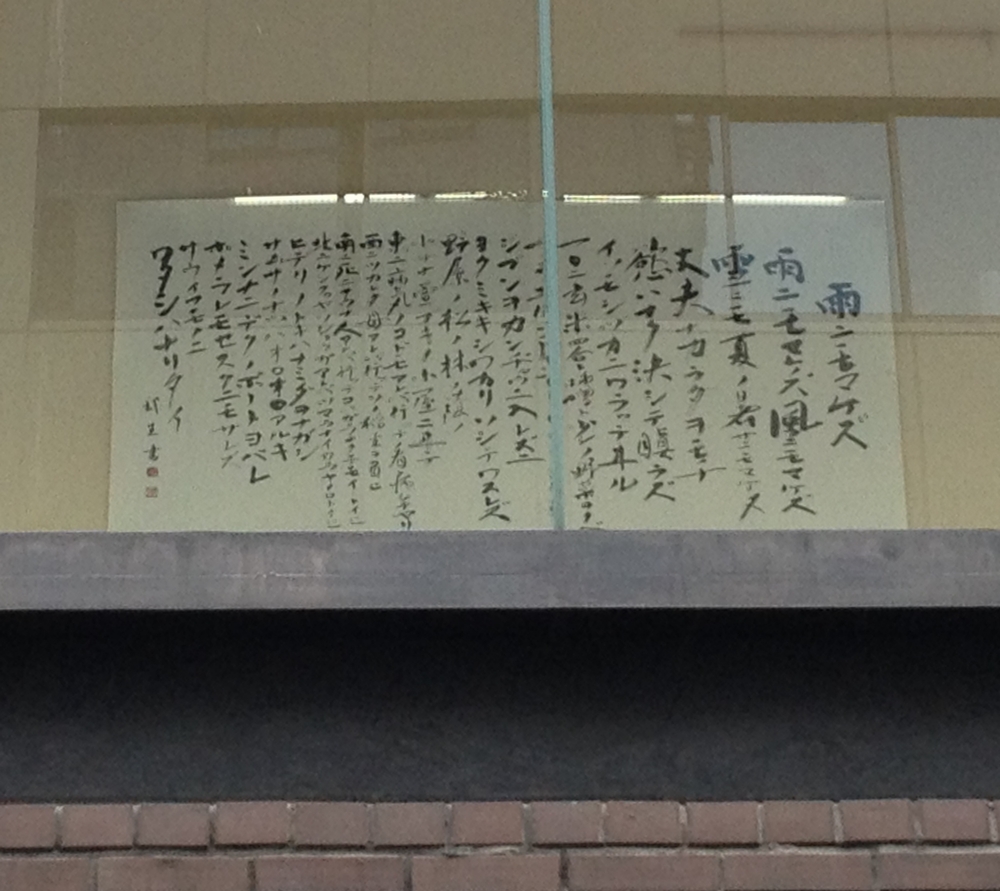 雨ニモマケズ
雨ニモマケズ風ニモマケズ
雪ニモ夏ノ暑サニモマケズ
丈夫ナカラダヲモチ
慾ハナク決シテ瞋ラズ
イツモシヅカニワラッテヰル
一日ニ玄米四合ト味噌ト少シノ野菜ヲタベ
ジブンヲカンヂャウニ入レズニ
ヨクミキキシワカリソシテワスレズ
野原ノ松ノ林ノ蔭ノ
小サナ萱ブキノ小屋ニヰテ
東ニ病気ノコドモアレバ行ッテ看病シテヤリ
西ニツカレタ母アレバ行ッテソノ稲ノ束ヲ負ヒ
南ニ死ニサウナ人アレバ行ッテコハガラナクテモイイトイヒ
北ニケンクヮヤソショウガアレバツマラナイカラヤメロトイヒ
ヒデリノトキハナミダヲナガシ
サムサノナツハオロオロアルキ
ミンナニデクノボートヨバレ
ホメラレモセズクニモサレズ
サウイフモノニ
ワタシハナリタイ
書